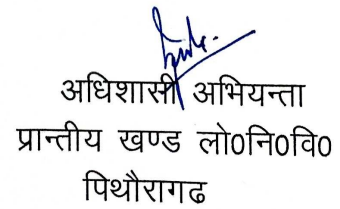 अधिशासी अभियन्ता
प्रान्तीय खण्ड लो0नि0वि0
पिथौरागढ